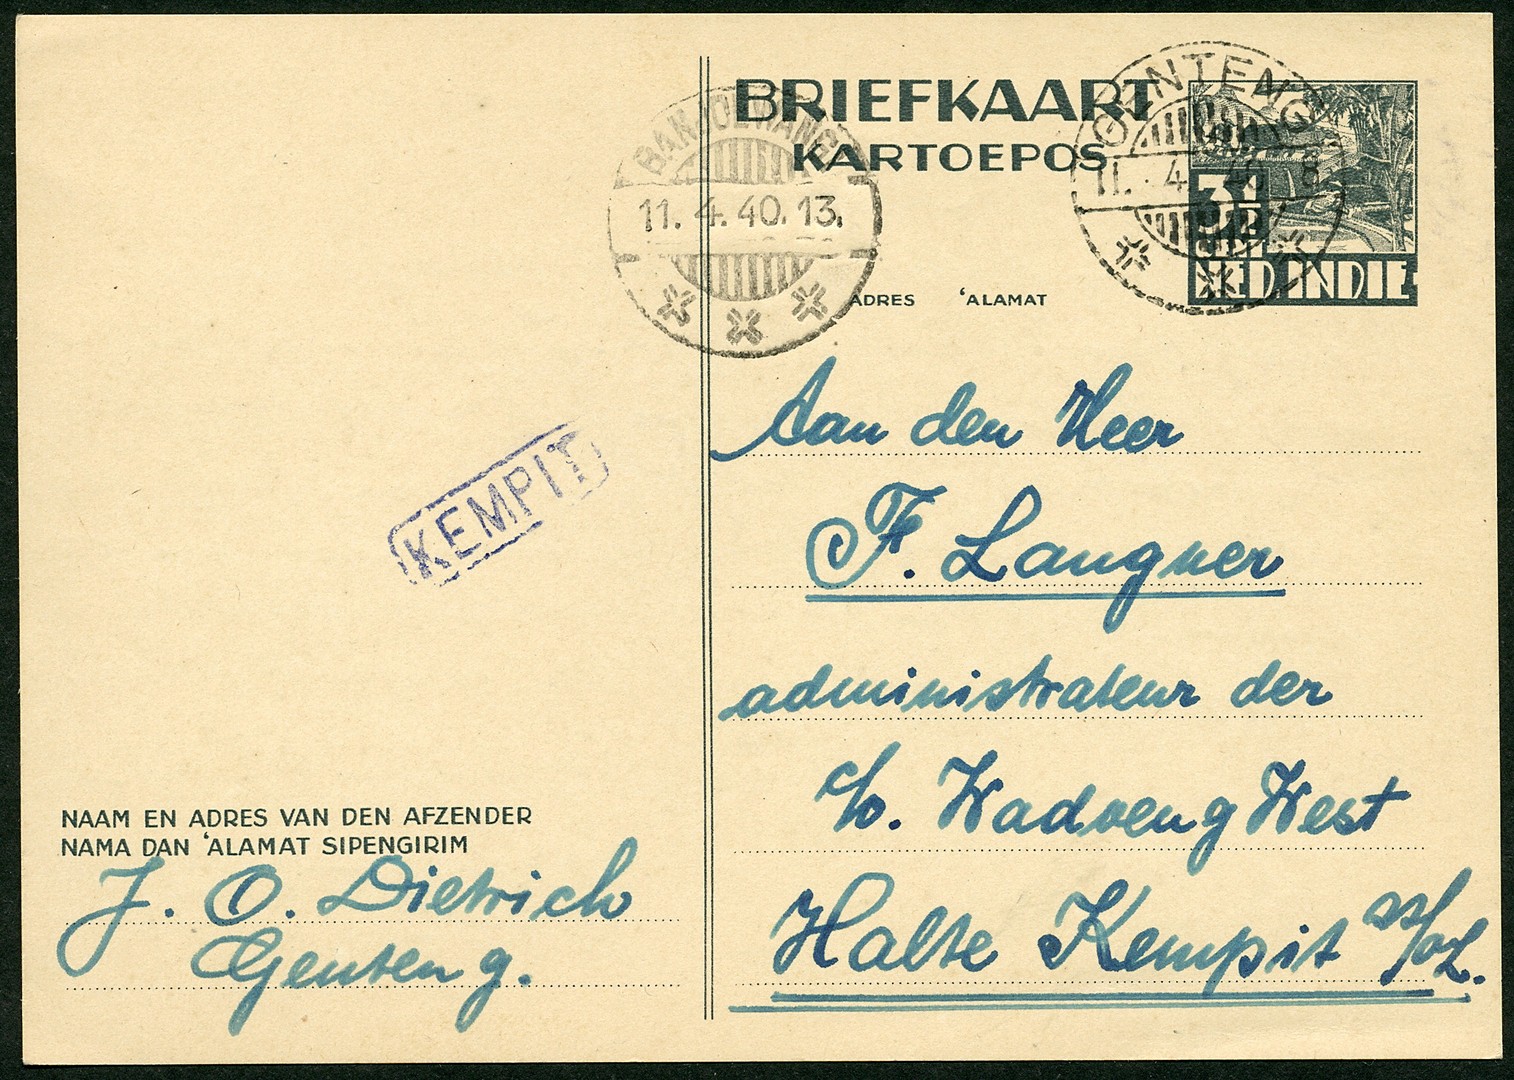 BRIEFKAART
KARTOEPOS
BANJOEWANGI
11. 4. 40. 13.
GENTENG
11. 4. 40. 8
3½
NED. INDIE
ADRES 'ALAMAT
Aan den Heer
F. Langner
administrateur der
Wadoeng West
Halte Kempit SS/OL.
KEMPIT
NAAM EN ADRES VAN DEN AFZENDER
NAMA DAN 'ALAMAT SIPENGIRIM
J. O. Dietrich
Genteng.